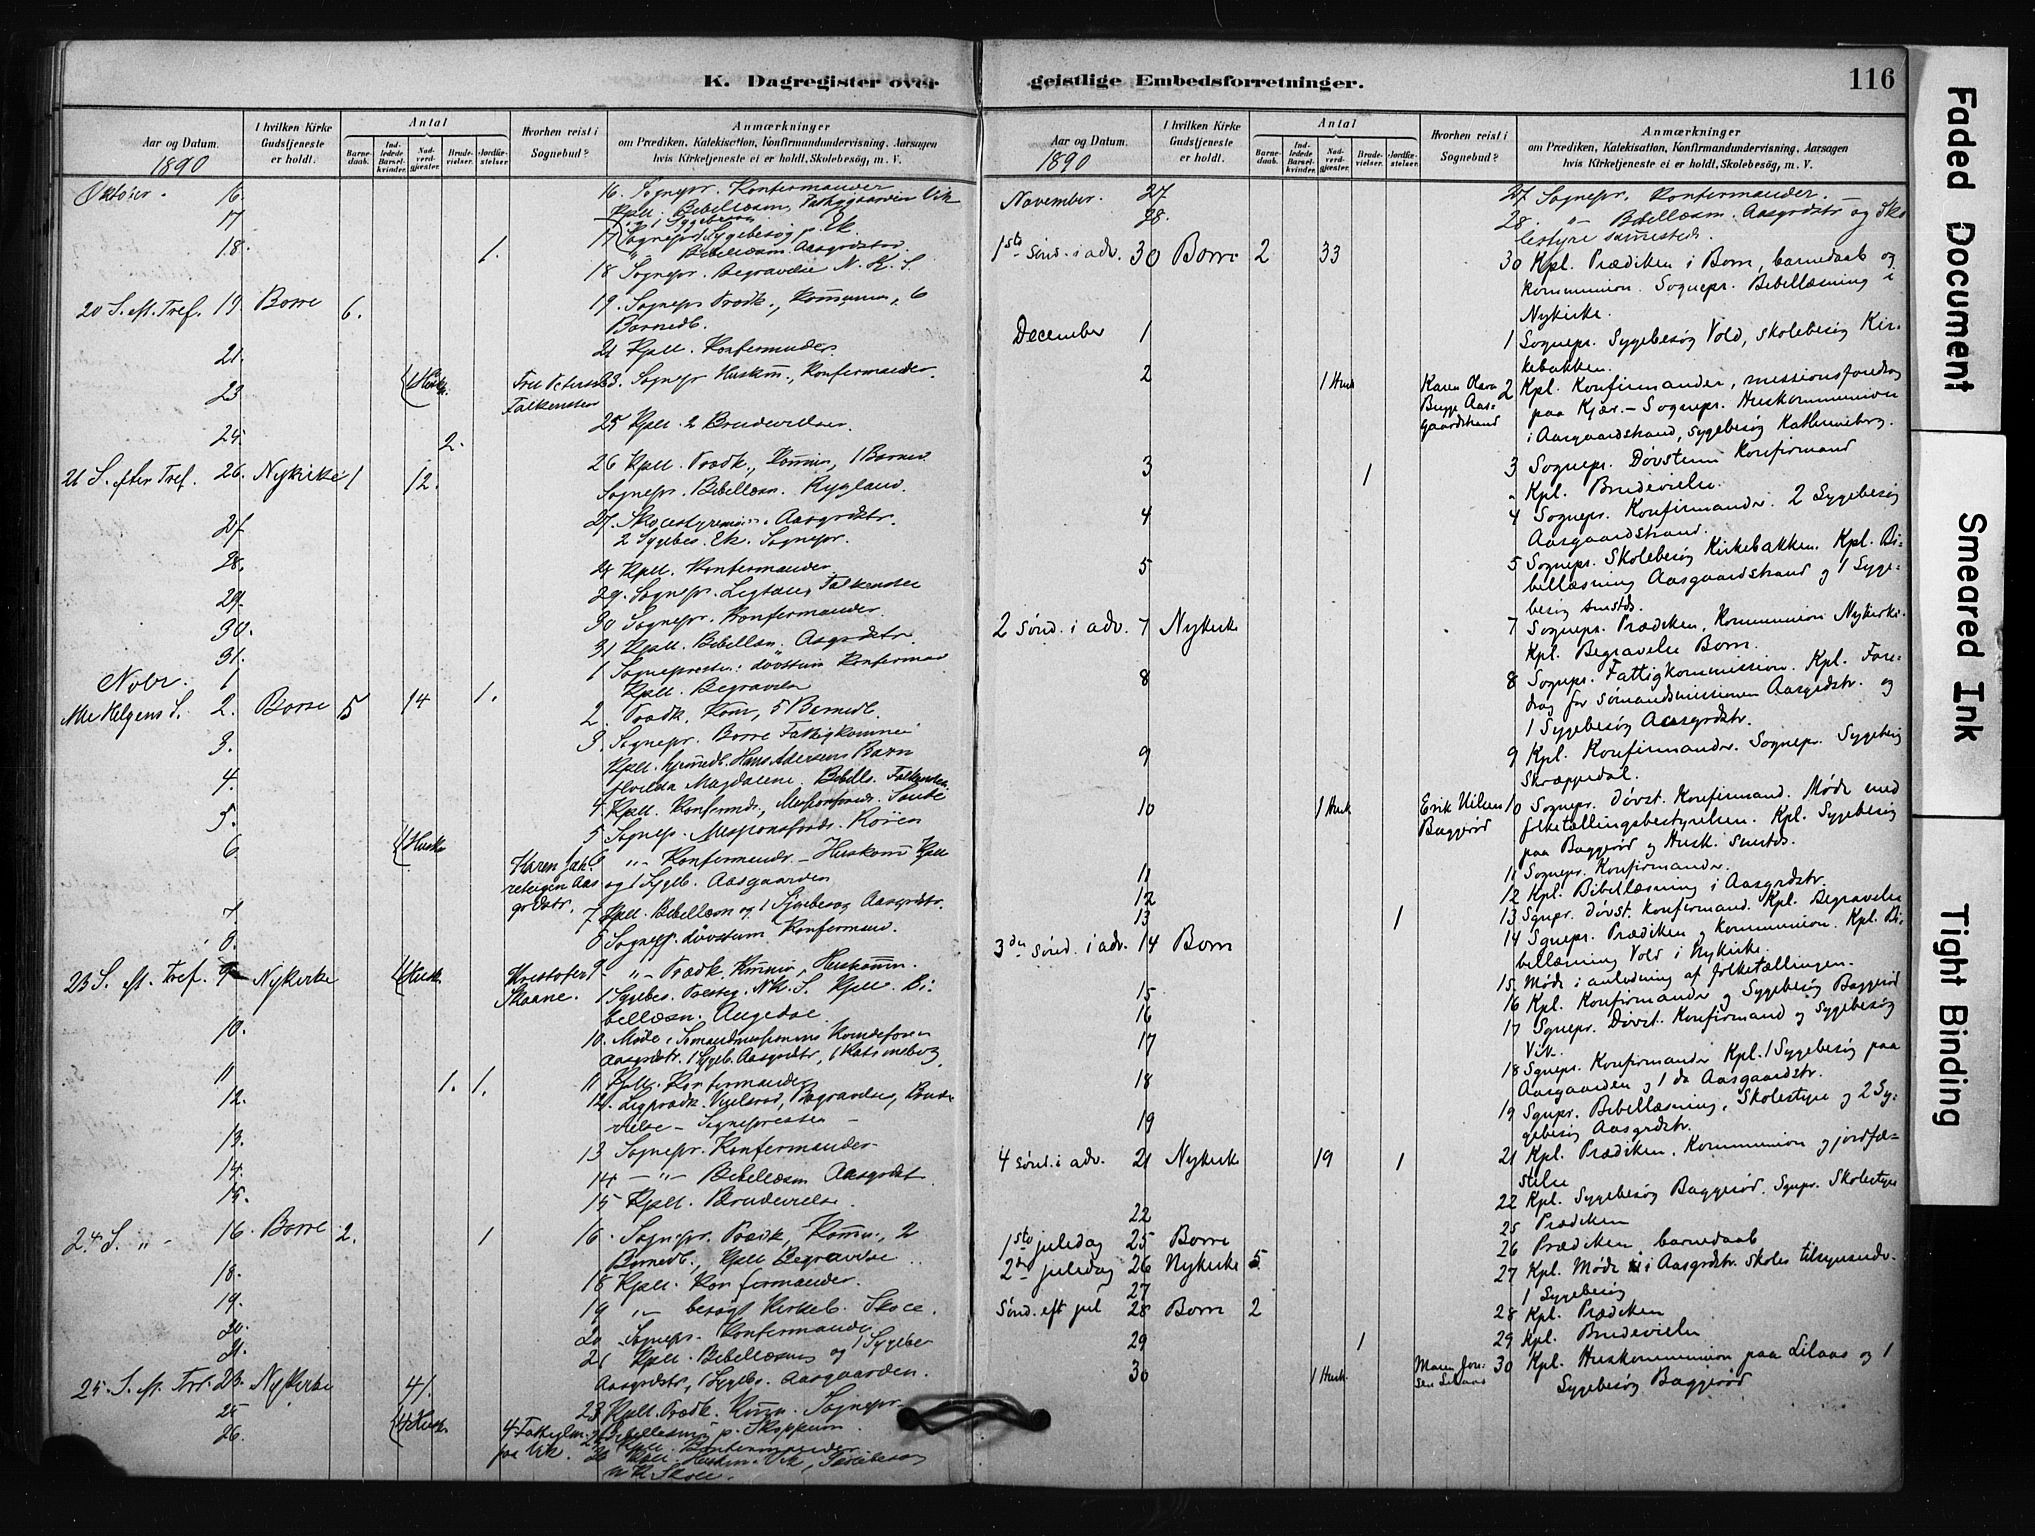 K. Dagregister over
Aar og Datum.
1890
I hvilken Kirke Gudstjeneste er holdt.
Antal
Barne-daab.
Ind-ledede Barsel-kvinder.
Nad-verd-gjester.
Brude-vielser.
Jordfæ-stelser
Hvorhen reist i Sognebud?
Anmærkninger
om Prædiken, Katekisation, Konfirmandundervisning, Aarsagen
hvis Kirketjeneste ei er holdt, Skolebesög, m. V.
Oktober. 16. 16. Sognepr. Konfermander
Kpll. Bibellæsn. Fattiggaarden Vik
17 17 Sognepr. Sygebesög p. Ek.
Bibellæsn. Aasgrdstrd.
18. 1. 18 Sognepr. Begravelse N. K. S.
20 S. eft. Tref. 19. Borre 6. 19. Sognepr. Prædk., Kommunion, 6
Barnedb.
21. 21 Kpll. Konfermander.
23 1 Husk. Falkensten 23. Sognepr Huskm., Konfermander.
25. 2. 25 Kpll. 2 Brudevielser.
21 S. efter Tref. 26. Nykirke 1 12. 26 Kpll. Prædk., Kommn, 1 Barned
Sognepr. Bibellæsn. Rygland.
27. 27. Skolestyremöde. Aasgrdstr.
2 Sygebes. Ek. Sognepr.
28. 28 Kpll. Konfermander
29. 29. Sognepr. Falkensten
30. 30 Sognepr. Konfermander.
31. 31 Kpll. Bibellæsn. Aasgrdstr.
Nobr. 1 1 Sognepresten: dövstum Konfermand
Kpll. Begravelse
Alle Helgens S. 2. Borre 5 14 1. 2. Prædk. Kom, 5 Barnedb.
3. 3 Sognepr. Borre Fattigkommis
Kpll. hjemedb. Hans Andersens Barn
Hvilda Magdalene. Bibell. Falkensten
4. 4 Kpll. Konfermd.,
5. 5 Sognep.
6 1 Husk Karen 6 " - Konfermandr. - Huskom Kpll
og 1 Sygeb. Aasgaarden
7. 7 Kpll. Bibellæsn og 1 Sygebesög Aasgrdstr.
8. 8 Sognep. dövstum Konfermand.
23 S. eft. Tref. 9 Nykirke 1 Husk. Kristofer Skaane. 9 " - Prædk. Kommn, Huskomn.
1 Sygebes. N. K. S. Kpll. Bi-
bellæsn. Augedal.
10. 10. Möde i Sömandsmissionens Kvindeforen
Aasgrdstr. 1 Sygeb. Aasgrdstr,
11 1. 1. 11 Kpll. Konfermander
12. 12. Ligprædk. Begravelse, Brude
vielse - Sognepresten -
13. 13 Sognepr. Konfermander
14. 14 - " - Bibellæsn Aasgrdst.
15. 15 Kpll. Brudevielse
24. S. " - 16. Borre 2. 1 16. Sognepr. Prædk, Kommn., 2
Barnedb., Kpll Begravelse
18. 18 Kpll. Konfermander.
19. 19 " - besögt Kirkeb. Skole.
20. 20 Sognepr. Konfermander
21. 21 Kpll. Bibellæsning og 1 Sygebes
Aasgrdstr, 1 Sygebs. Aasgaarden.
25. S. eft. Tref. 23. Nykirke 41. 23 Kpll. Prædk. Komn. Sognepr
Bibellæsning p. Skoppum
25 Kpll. Konfirmander
26. 4 Husk. paa Vik. 26 Kpll. Huskm. Vik,
N. K. Skole.
geistlige Embedsforretninger.
116
Aar og Datum.
1890
I hvilken Kirke Gudstjeneste er holdt.
Antal
Barne-daab.
Ind-ledede Barsel-kvinder.
Nad-verd-gjester.
Brude-vielser.
Jordfæ-stelser.
Hvorhen reist i Sognebud?
Anmærkninger
om Prædiken, Katekisation, Konfirmandundervisning, Aarsagen
hvis Kirketjeneste ei er holdt, Skolebesög, m. V.
November. 27 27 Sognepr. Konfermander.
28. 28. " Bibellæsn. Aasgrdstr og Sko
lestyre sammesteds.
1ste Sönd. i adv. 30 Borre 2 33 30 Kpl. Prædiken i Borre, barnedaab og
kommunion. Sognepr. Bibellæsning i
Nykirke.
December 1 1 Sognepr. Sygebesög Vold, skolebesög Kir-
kebakken.
2 1 Husk Karen Olava Bugge Aas-gaardstrand 2 Kpl. Konfirmander, missionsforedrag
paa Kjær. - Sognepr. Huskommunion
i Aasgaardstrand, sygebesög Kathrineberg.
3 1 3 Sognepr. Dövstum Konfirmand
Kpl. Brudevielse.
4 4 Sognepr. Konfirmander. 2 Sygebesög
Aasgaardstrand.
5 5 Sognepr. Skolebesög Kirkebakken. Kpl. Bi-
bellæsning Aasgaardstrand og 1 Syge-
besög smstds.
2 Sönd. i adv. 7 Nykirke 7 Sognepr. Prædiken, Kommunion Nykirke.
Kpl. Begravelse Borre.
8 8 Sognepr. Fattigkommission. Kpl. Fore-
drag for Sömandsmissionen Aasgrdstr. og
1 Sygebesög Aasgrdstr.
9 9 Kpl. Konfirmander. Sognepr. Sygebesög
Skræppedal.
10 1 Husk Erik Nilsen Baggeröd 10 Sognepr. Dövst. Konfirmand. Möde med
folketællingsbestyrelsen. Kpl. Sygebesög
paa Baggeröd og Husk. smstds.
11 11 Sognepr. Konfirmander.
12 12 Kpl. Bibellæsning i Aasgrdstr.
13 1 13 Sgnpr. Dövst. Konfirmand. Kpl. Begravelse
3die Sönd. i adv. 14 Borre 14 Sgnepr. Prædiken og Kommunion. Kpl. Bi-
bellæsning Vold i Nykirke.
15 15 Möde i anledning af folketællingen.
16 16 Kpl. Konfirmander og Sygebesög Baggeröd
17 17 Sgnepr. Dövst. Konfirmand og Sygebesög
Vik.
18 18 Sgnepr. Konfirmander Kpl. 1 Sygebesög paa
Aasgaarden og 1 do Aasgaardstr.
19 19 Sgnpr. Bibellæsning, Skolestyre og 2 Sy-
gebesög Aasgrdstr.
4 sönd. i adv. 21 Nykirke 19 1 21 Kpl. Prædiken, Kommunion og jordfæ-
stelse
22 22 Kpl. Sygebesög Baggeröd. Sgnpr. Skolestyre
1ste juledag 25 Borre 25 Prædiken
2den juledag 26 Nykirke 5 26 Prædiken, barnedaab
27 27 Kpl. Möde i Aasgrdstr. Skoles tilsynsudv.
1 Sygebesög
Sönd. eft jul 28 Borre 2 28 Kpl. Prædiken
29 1 29 Kpl. Brudevielse
30 1 Husk. Maren Jon-sen Lilaas 30 Kpl. Huskommunion paa Lilaas og 1
Sygebesög Baggeröd
Faded Document
Smeared Ink
Tight Binding